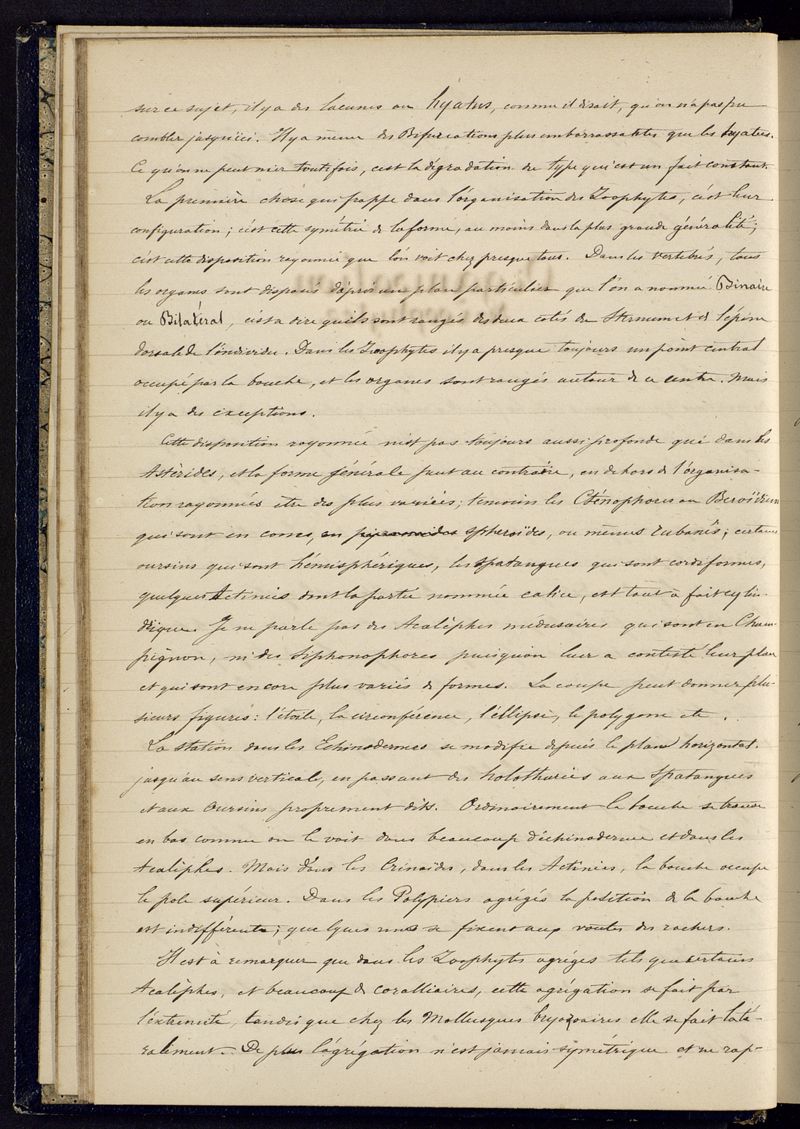 sur ce sujet, il y a des lacunes ou hyatus, comme il disait, qu'on n'a pas pu
combler jusqu'ici. Il y a même des Bifurcations plus embarrassantes que les hyatus.
Ce qu'on ne peut nier toutefois, c'est la dégradation du type qui est un fait constant.
La première chose qui frappe dans l'organisation des Zoophytes, c'est leur
configuration; c'est cette symétrie de la forme, au moins dans la plus grande généralité;
c'est cette disposition rayonnée que l'on voit chez presque tous. Dans les vertébrés, tous
les organes sont disposés d'après un plan particulier que l'on a nommé Binaire
ou Bilatéral, c'est à dire qu'ils sont rangés des deux cotés du Sternum et de l'épine
dorsale de l'individu. Dans les Zoophytes il y a presque toujours un point central
occupé par la bouche, et les organes sont rangés autour de ce centre. Mais
il y a des exceptions.
Cette disposition rayonnée n'est pas toujours aussi profonde que dans les
Astérides, et la forme générale peut au contraire, en dehors de l'organisa-
tion rayonnées être des plus variées; temoin les Cténophores ou Beroïdiens
qui sont en cones, en spheroïdes, ou même rubanés; certains
oursins qui sont hémisphériques, les spatangues qui sont cordiformes,
quelques Actinies dont la partie nommée calice, est tout à fait cylin-
drique. Je ne parle pas des Acalèphes médusaires qui sont en Cham-
pignon, ni des Siphonophores puisqu'on leur a contesté leur plan
et qui sont encore plus variés de formes. La coupe peut donner plu-
sieurs figures: l'étoile, la circonférence, l'éllipse, le polygone etc.
La station dans les Echinodermes se modifie depuis le plan horizontal
jusqu'au sens verticale, en passant des holothuries aux Spatangues
et aux Oursins proprement dits. Ordinairement la bouche se trouve
en bas comme on le voit dans beaucoup d'échinoderme et dans les
Acalèphes. Mais dans les Crinoïdes, dans les Actinies, la bouche occupe
le pole supérieur. Dans les Polypiers agrégés la position de la bouche
est indifférente; quelques unes se fixent aux voutes des rochers.
Il est à remarquer que dans les Zoophytes agrégés tels que certains
Acalèphes, et beaucoup de coralliaires, cette agrégation se fait par
l'extremité, tandis que chez les Mollusques bryozoaires elle se fait laté-
ralement. De plus l'agrégation n'est jamais symétrique et ne rap-